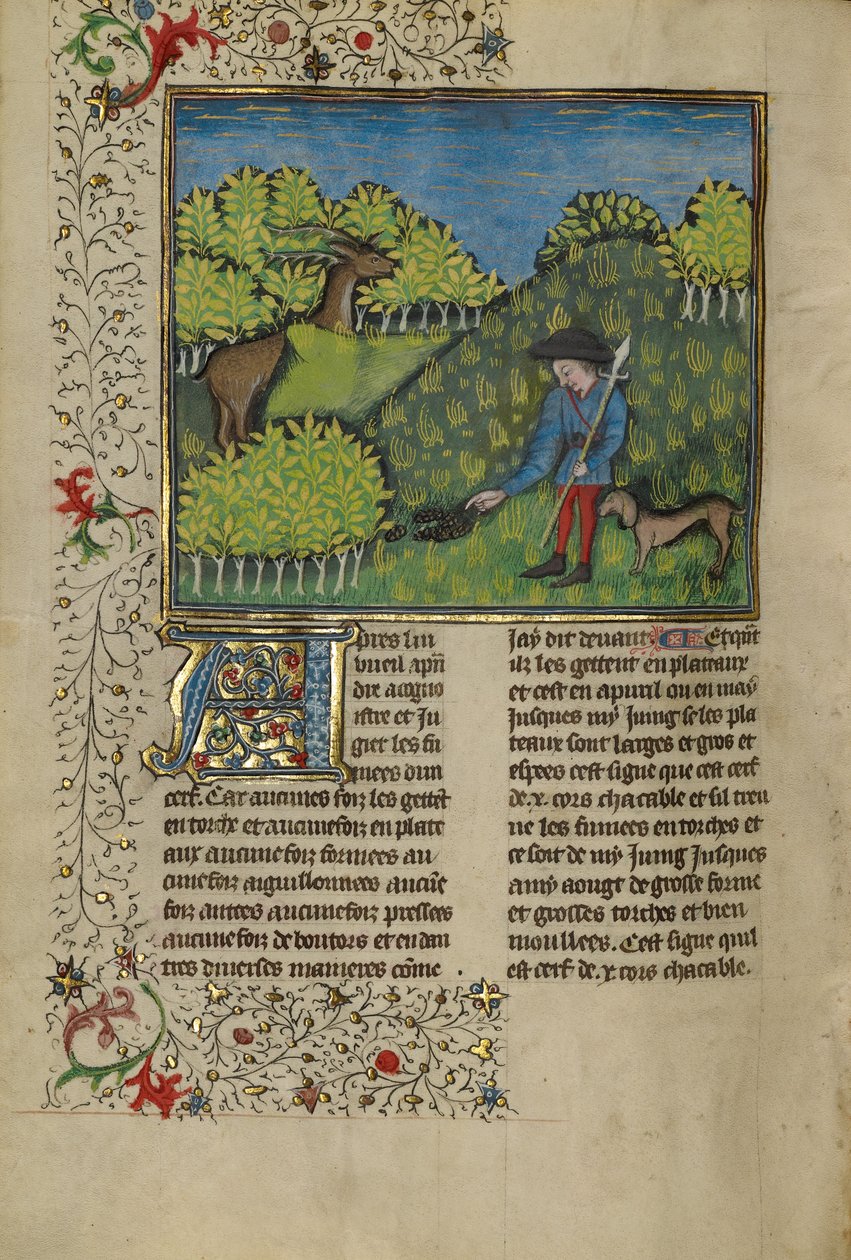 Apres lui
vueil apñ
dre acogno
istre et Ju
gier les fu
mees dun
cerf. Car aucunes foiz les gettẽt
en torche et aucune foiz en plate
aux aucune foiz formees au
cune foiz aiguillonnees aucũe
foiz autres aucune foiz pressees
aucune foiz de boutors et en dau
tres diuerses manieres cõme
Jay dit deuant Et qũt
ilz les gettent en plateaux
et cest en apuril ou en may
Jusques my Jung se les pla
teaux sont larges et gros et
espees cest signe que cest cerf
de .x. cors chacable et sil treu
ue les fumees en torches et
ce soit de my Jung Jusques
a my aougt de grosse forme
et grosses torches et bien
moullees. Cest signe quil
est cerf de .x. cors chacable.